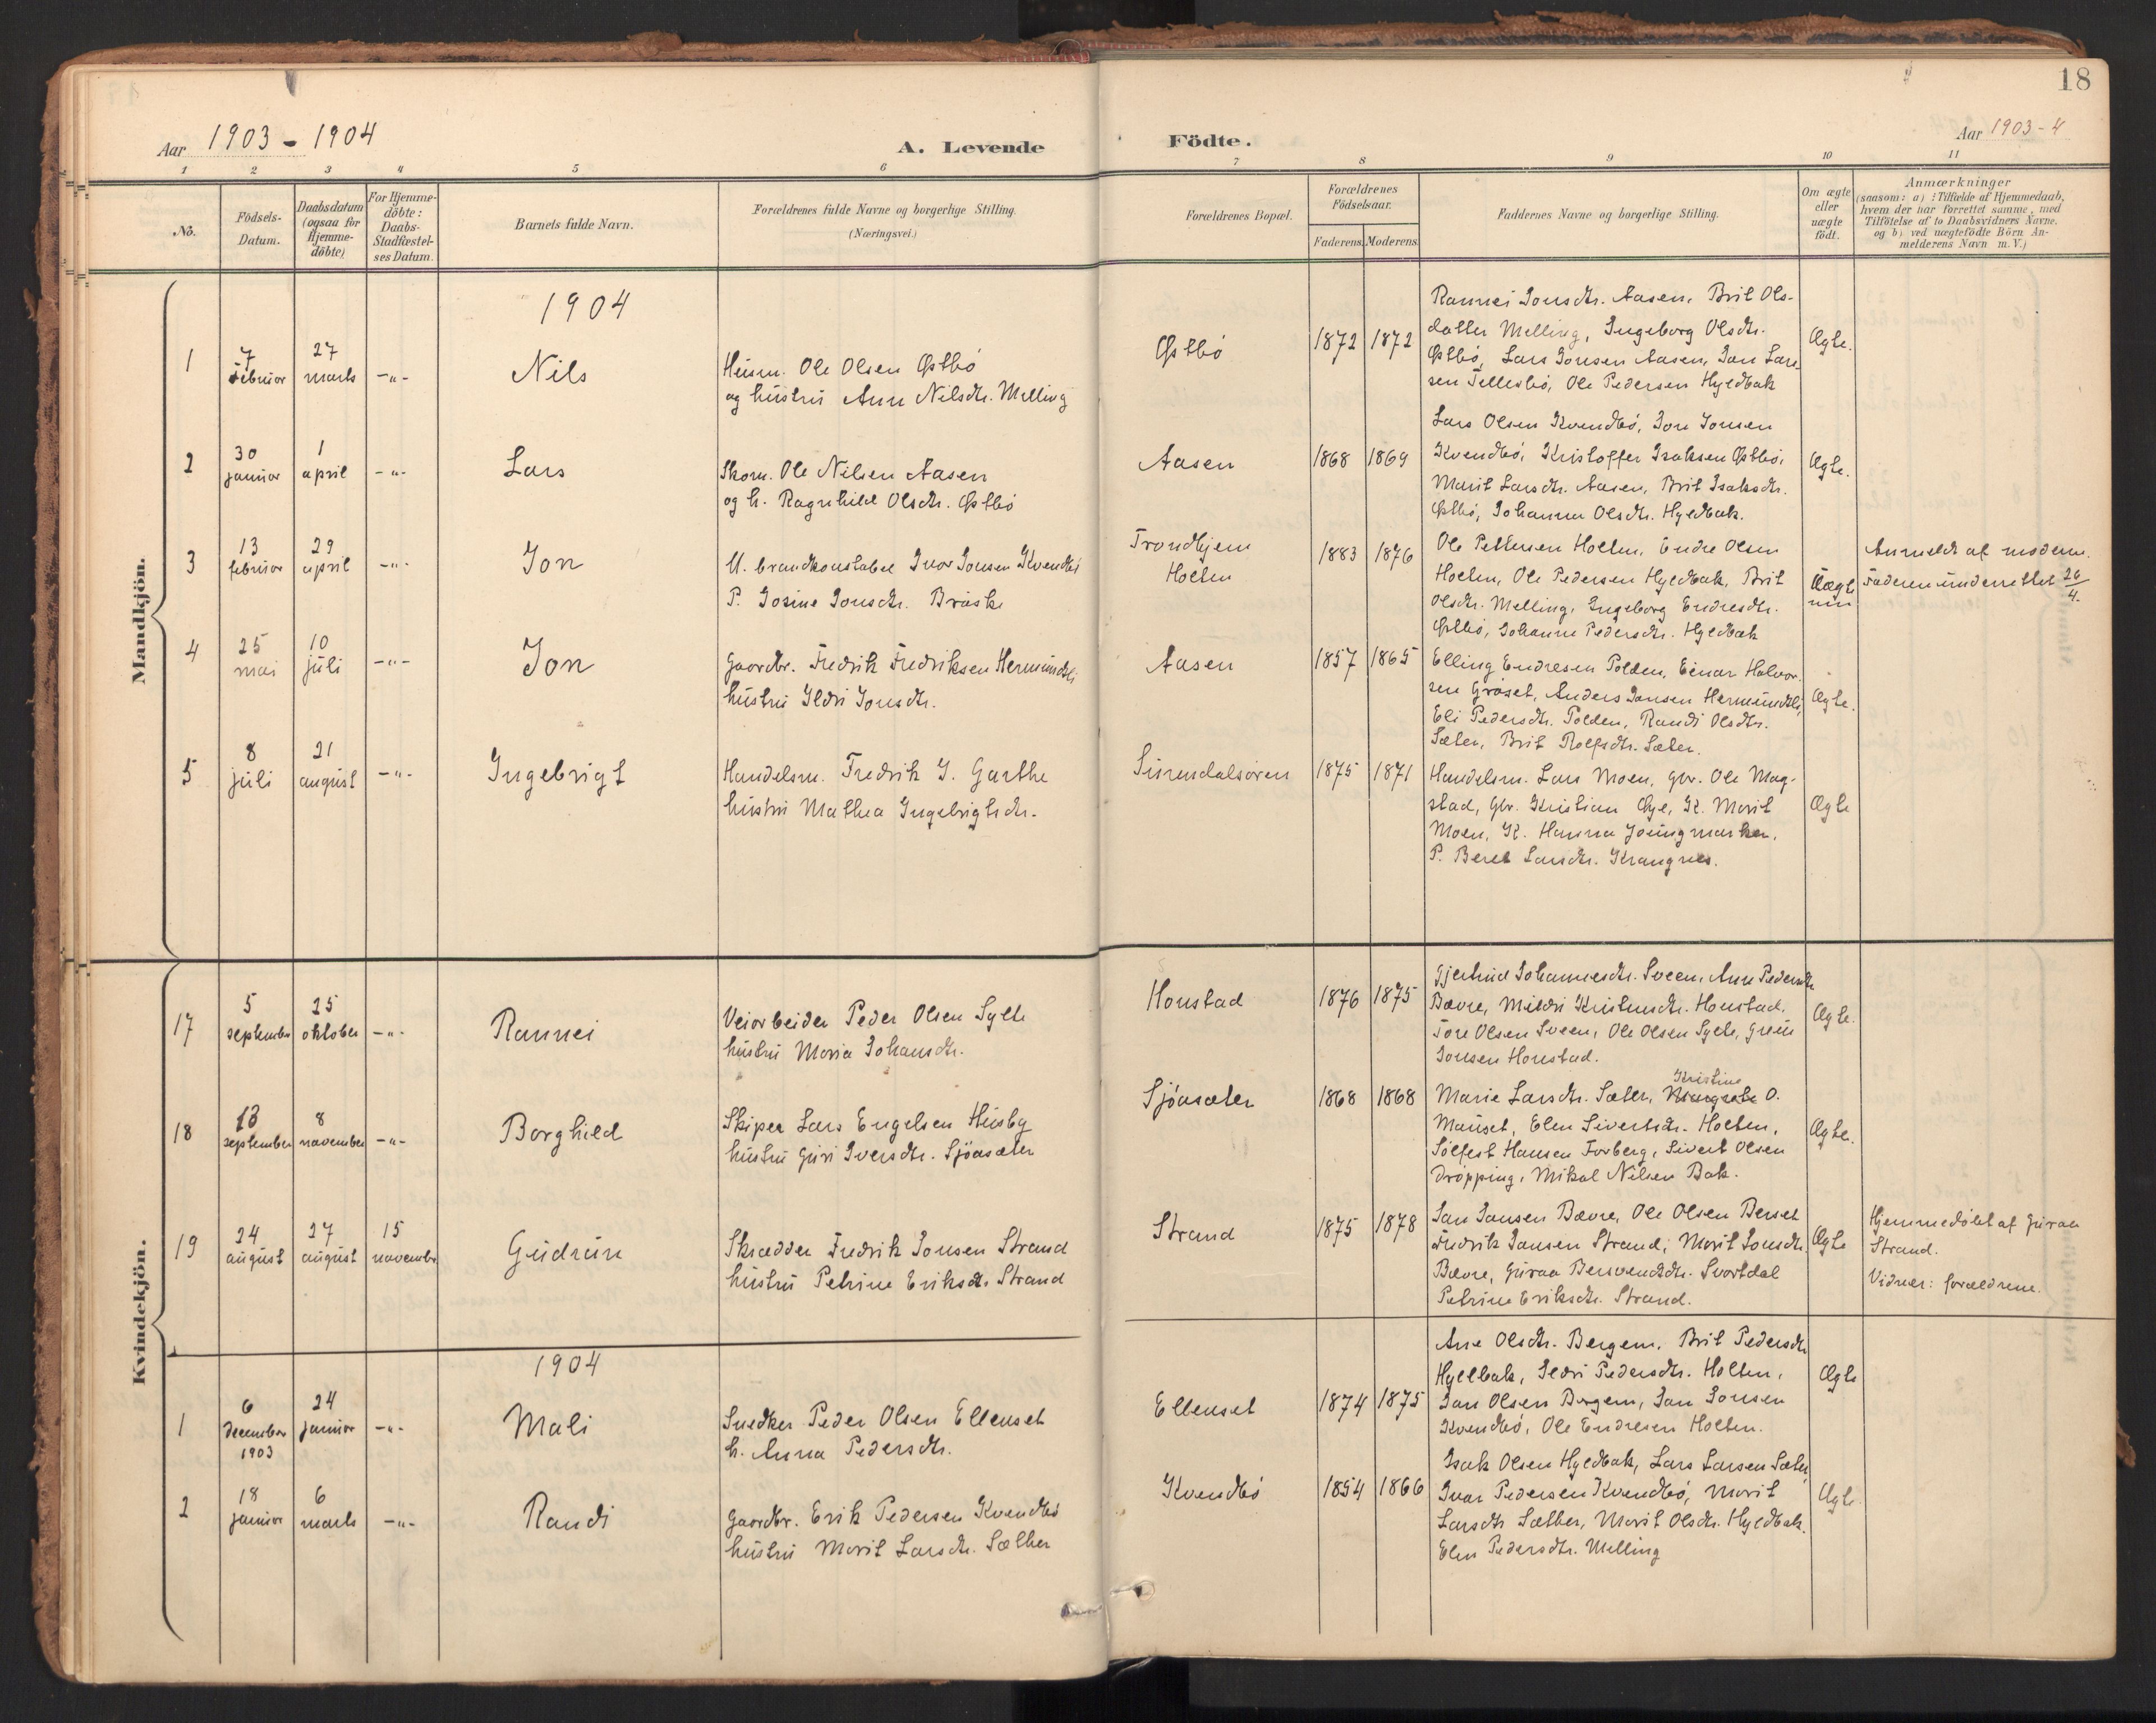 18
Aar 1903 - 1904
A. Levende
Födte.
Aar 1903-4
1 2 3 4 5 6 7 8 9 10 11
No.
Födsels-
Datum.
Daabsdatum
(ogsaa för
Hjemme-
döbte)
For Hjemme-
döbte:
Daabs-
Stadfæstel-
ses Datum.
Barnets fulde Navn.
Forældrenes fulde Navne og borgerlige Stilling.
(Næringsvei.)
Forældrenes Bopæl.
Forældrenes
Födselsaar.
Faderens. Moderens.
Faddernes Navne og borgerlige Stilling.
Om ægte
eller
uægte
födt.
Anmærkninger
(saasom: a) i Tilfælde af Hjemmedaab,
hvem der har forrettet samme, med
Tilföielse af to Daabsvidners Navne.
og b) ved uægtefödte Börn An-
melderens Navn m. V.)
Mandkjön.
1904
1
7
februar
27
marts
-"-
Nils
Husm. Ole Olsen Østbö
og hustru Ane Nilsdtr. Melling
Østbö
1872 1872
Rannei Jonsdtr. Aasen, Brit Ols-
datter Melling, Ingeborg Olsdtr.
Østbö, Lars Jonsen Aasen, Jon Lar-
sen Tellesbö, Ole Pedersen Hyldbak
Ægte.
2
30
januar
1
april
-"-
Lars
Skom. Ole Nilsen Aasen
og h. Ragnhild Olsdtr. Østbö
Aasen
1868 1869
Lars Olsen Kvendbö, Jon Jonsen
Kvendbö, Kristoffer Isaksen Østbö,
Marit Larsdtr. Aasen, Brit Isaksdtr.
Østbö, Johanna Olsdtr. Hyldbak.
Ægte.
3
13
februar
29
april
-"-
Jon
U. brandkonstabel Ivar Jonsen Kvendbö
P. Josine Jonsdtr. Bräske
Trondhjem
Holten
1883 1876
Ole Pettersen Holten, Endre Olsen
Holten, Ole Pedersen Hyldbak, Brit
Olsdtr. Melling, Ingeborg Endresdtr.
Østbö, Johanne Pedersdtr. Hyldbak
Uægte
Anmeldt af moderen.
Faderen underrettet 26/4.
4
25
mai
10
juli
-"-
Jon
Gaardbr. Fredrik Fredriksen Hermundsli
hustru Ildri Jonsdtr.
Aasen
1857 1865
Elling Endresen Polden, Einar Halvor-
sen Gråset, Anders Jonsen Hermundsli,
Eli Pedersdtr. Polden, Randi Olsdtr.
Sæter, Brit Rolfsdtr. Sæter.
Ægte.
5
8
juli
21
august
-"-
Ingebrigt
Handelsm. Fredrik J. Garthe
hustru Mathea Ingebrigtsdtr.
Surendalsören
1875 1871
Handelsm. Lars Moen, gbr. Ole Mog-
stad, gbr. Kristian Øye, K. Marit
Moen, K. Hanna
P. Beret Larsdtr. Krangnes.
Ægte
Kvindekjön.
17
5
september
25
oktober
-"-
Rannei
Veiarbeider Peder Olsen Sylte
hustru Maria Johansdtr.
Honstad
1876 1875
Gjertrud Johannesdtr. Sveen, Ane Pedersdtr.
Bævre, Mildri Kristensdtr. Honstad,
Tore Olsen Sveen, Ole Olsen Sylte,
Jonsen Honstad.
Ægte.
18
13
september
8
november
-"-
Borghild
Skiper Lars Engelsen Husby
hustru Guri Iversdtr. Sjöasæter
Sjöasæter
1868 1868
Kristine
Marie Larsdtr. Sæter, O.
Mauset, Elen Sivertsdr. Holten,
Solfest Hansen Torberg, Sivert Olsen
Dröpping, Mikal Nilsen Bak.
Ægte.
19
24
august
27
august
15
november
Gudrun
Skrædder Fredrik Jonsen Strand
hustru Petrine Eriksdtr. Strand
Strand
1875 1878
Jon Jonsen Bævre, Ole Olsen Berset
Fredrik Jonsen Strand, Marit Jonsdtr.
Bævre, Guraa Bersvendsdtr. Svartdal
Petrine Eriksdtr. Strand.
Ægte
Hjemmedöbt af Guraa
Strand.
Vidner: forældrene.
1904
1
6
december
1903
24
januar
-"-
Mali
Snedker Peder Olsen Ellenset
h. Anna Pedersdtr.
Ellenset
1874 1875
Ane Olsdtr. Bergem, Brit Pedersdtr.
Hyldbak, Ildri Pedersdtr. Holten,
Jon Olsen Bergem, Jon Jonsen
Kvendbö, Ole Endresen Holten.
Ægte
2
18
januar
6
marts
-"-
Randi
Gaardbr. Erik Pedersen Kvendbö
hustru Marit Larsdtr. Sæther
Kvendbö
1854 1866
Isak Olsen Hyldbak, Lars Larsen Sæter,
Ivar Pedersen Kvendbö, Marit
Larsdtr Sæther, Marit Olsdtr. Hyldbak,
Elen Pedersdtr. Melling
Ægte.